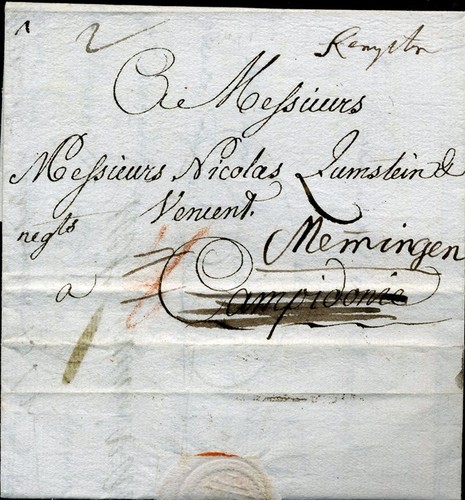 Kempten
A Messieurs
Messieurs Nicolas Zumstein &
Vincent.
negts Memingen
a Campidonie